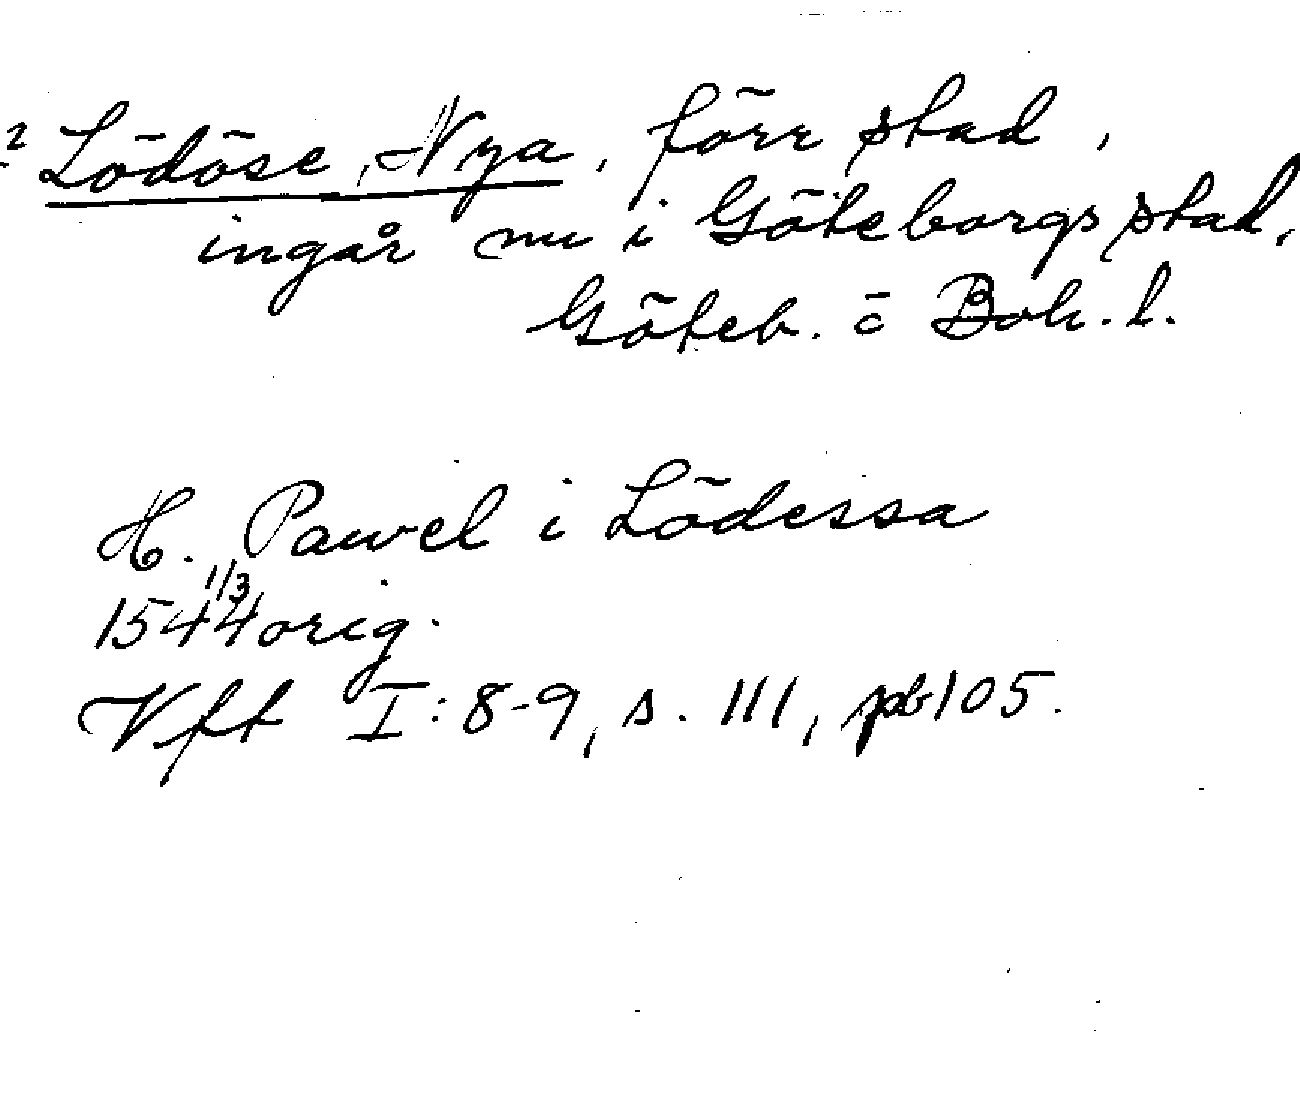 2 Lödöse, Nya, förr stad,
ingår nu i Göteborgs stad,
Göteb. o Boh. l.
H. Pawel i Lödessa
1544 1/3 orig.
Vft I:8-9, s. 111, pb 105.